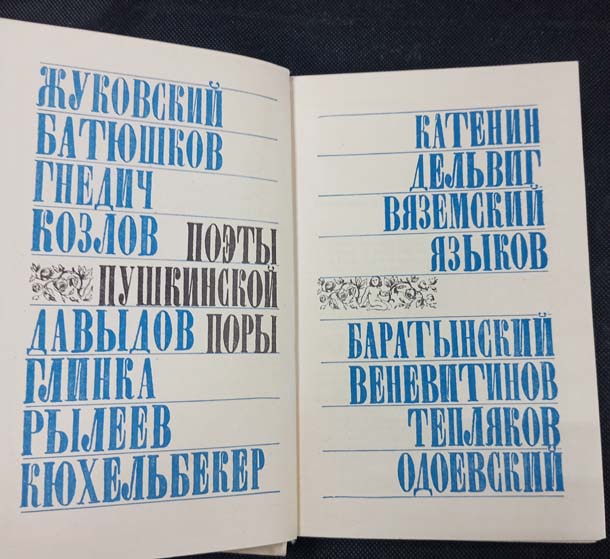 ЖУКОВСКИЙ
БАТЮШКОВ
ГНЕДИЧ
КОЗЛОВ
ПОЭТЫ
ПУШКИНСКОЙ
ПОРЫ
ДАВЫДОВ
ГЛИНКА
РЫЛЕЕВ
КЮХЕЛЬБЕКЕР
КАТЕНИН
ДЕЛЬВИГ
ВЯЗЕМСКИЙ
ЯЗЫКОВ
БАРАТЫНСКИЙ
ВЕНЕВИТИНОВ
ТЕПЛЯКОВ
ОДОЕВСКИЙ